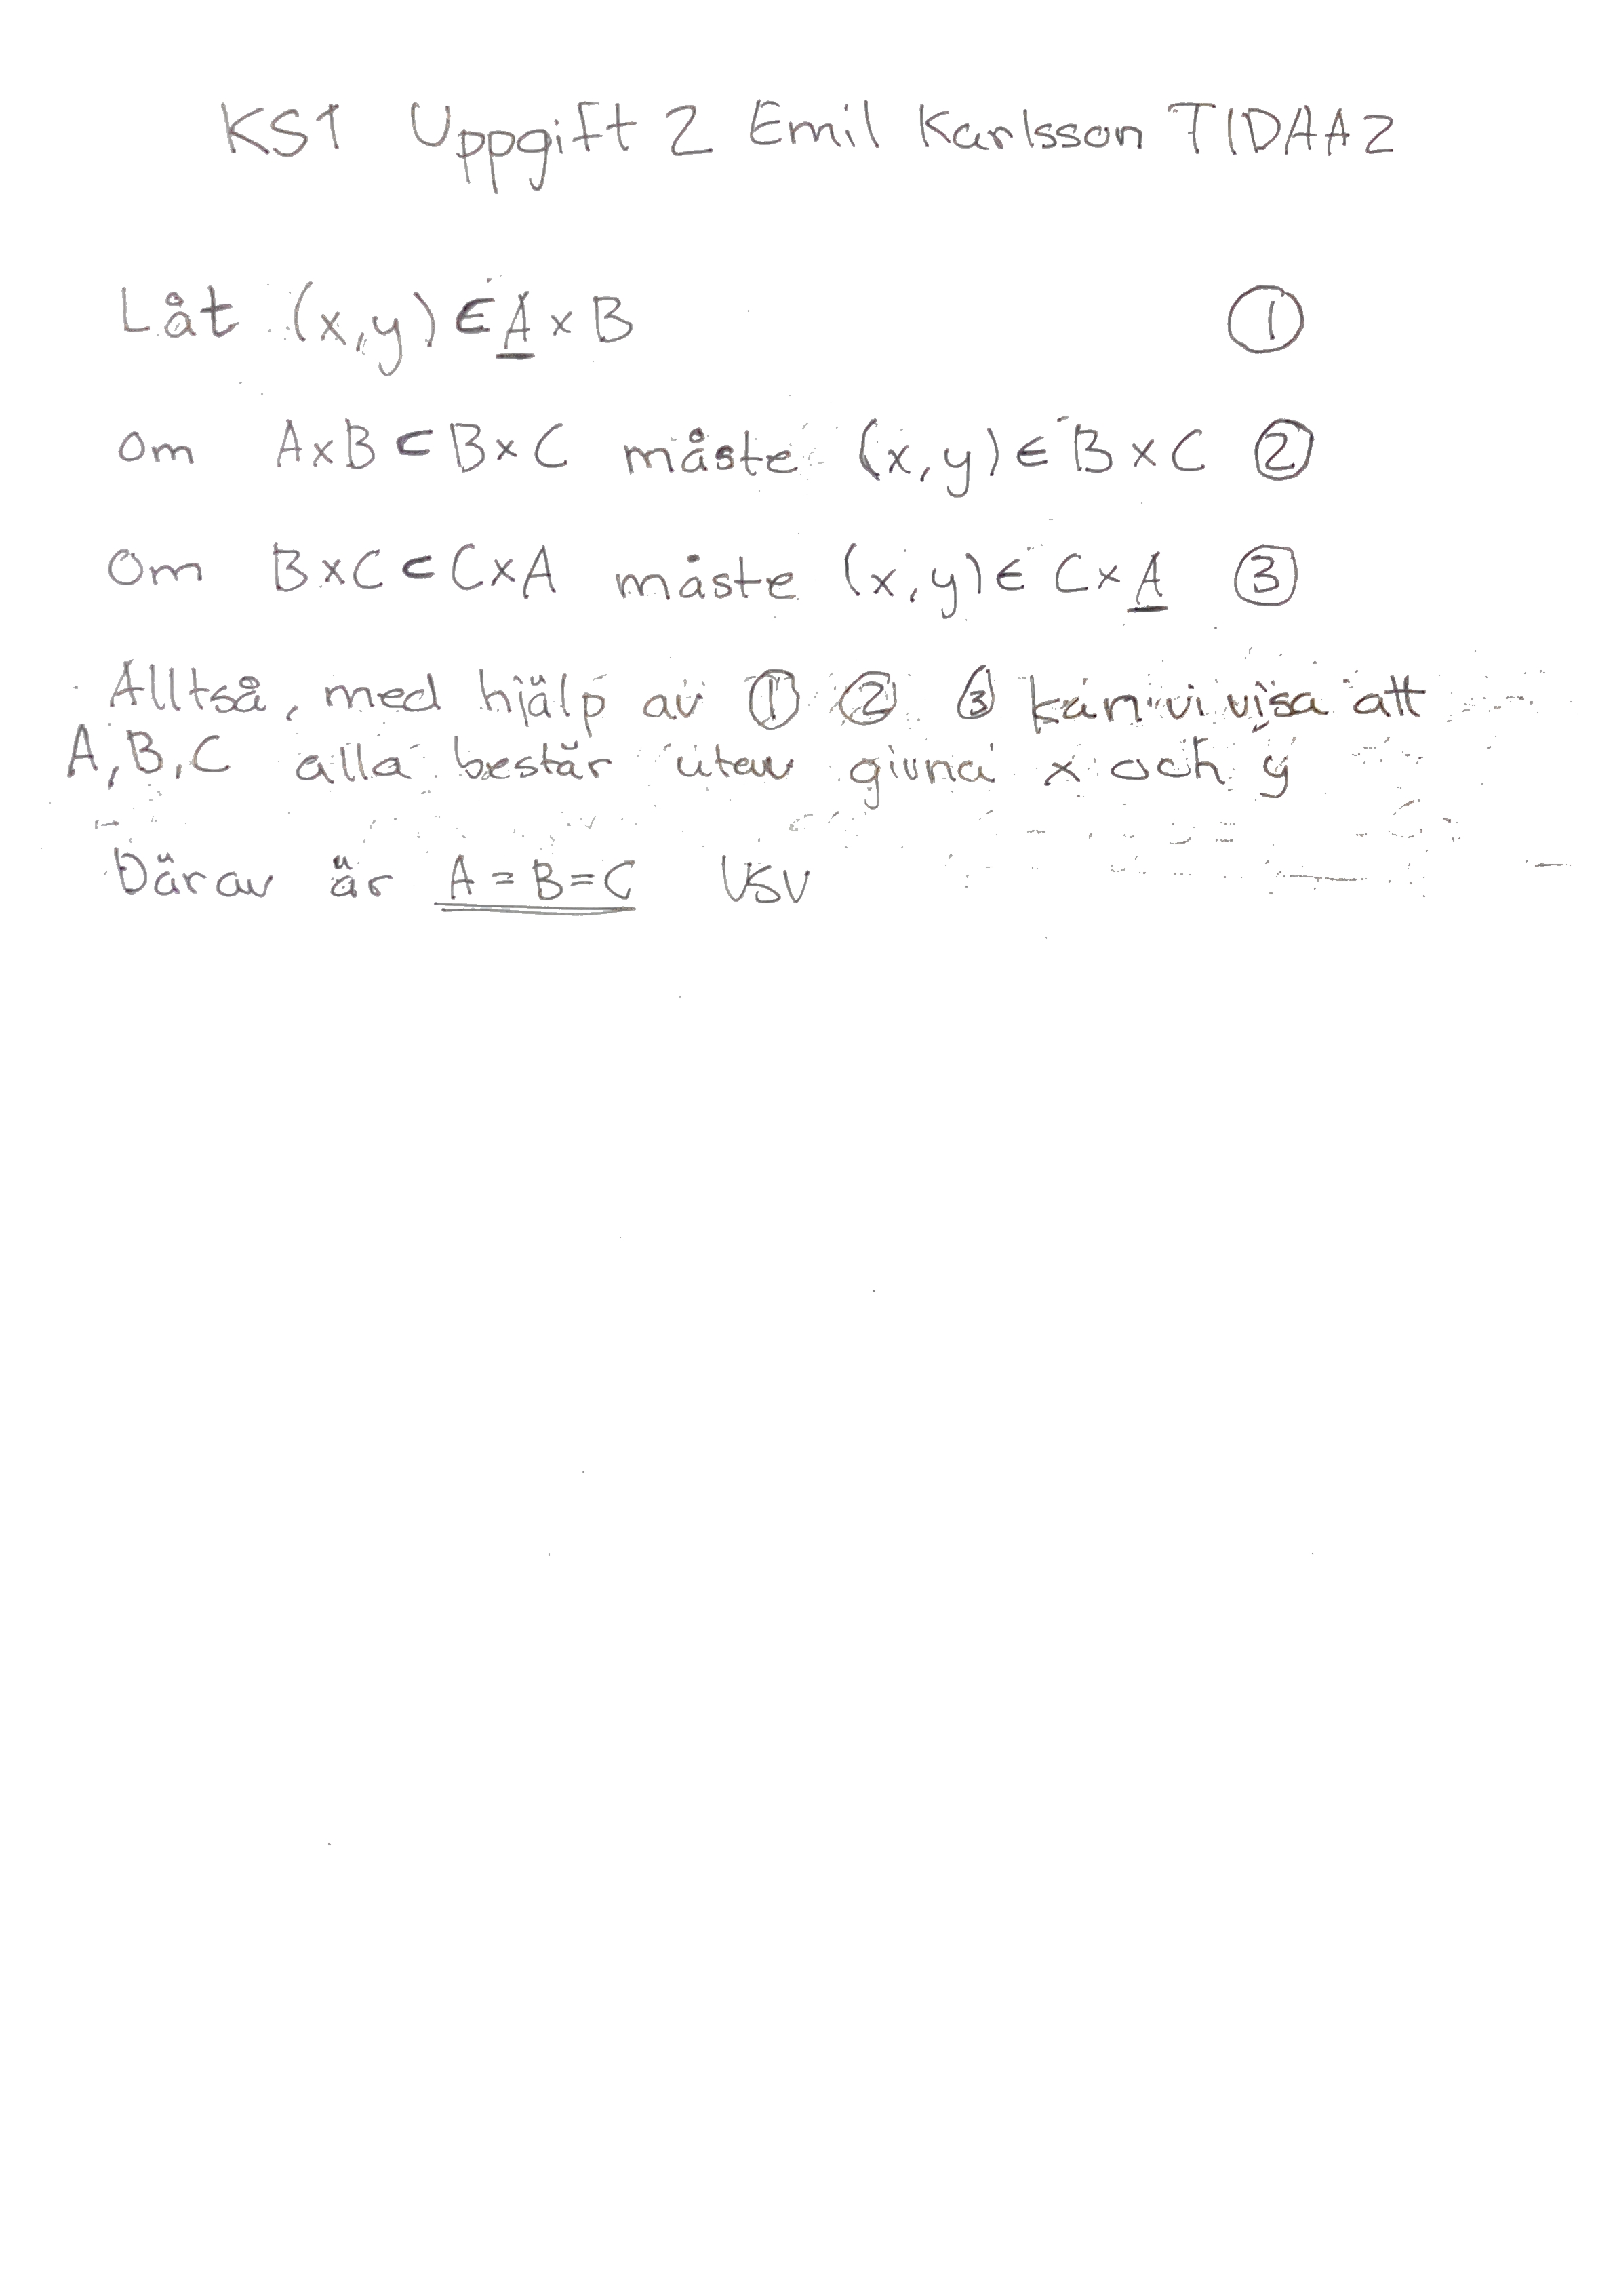 KS1 Uppgift 2 Emil Karlsson TIDAA2
Låt (x,y) ∈ A × B ①
Om A×B ⊂ B×C måste (x,y) ∈ B × C ②
Om B×C ⊂ C×A måste (x,y) ∈ C × A ③
Alltså, med hjälp av ① ② ③ kan vi visa att
A, B, C alla består utav givna x och y
Därav är A = B = C VSV